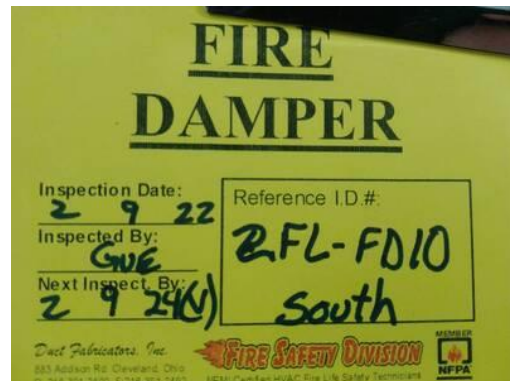 FIRE
DAMPER
Inspection Date:
2 9 22
Inspected By:
GVE
Next Inspect. By:
2 9 24(V)
Reference I.D.#:
2FL-FD10
South
Duct Fabricators, Inc.
883 Addison Rd. Cleveland, Ohio
FIRE SAFETY DIVISION
NEMI Certified HVAC Fire Life Safety Technicians
MEMBER
NFPA